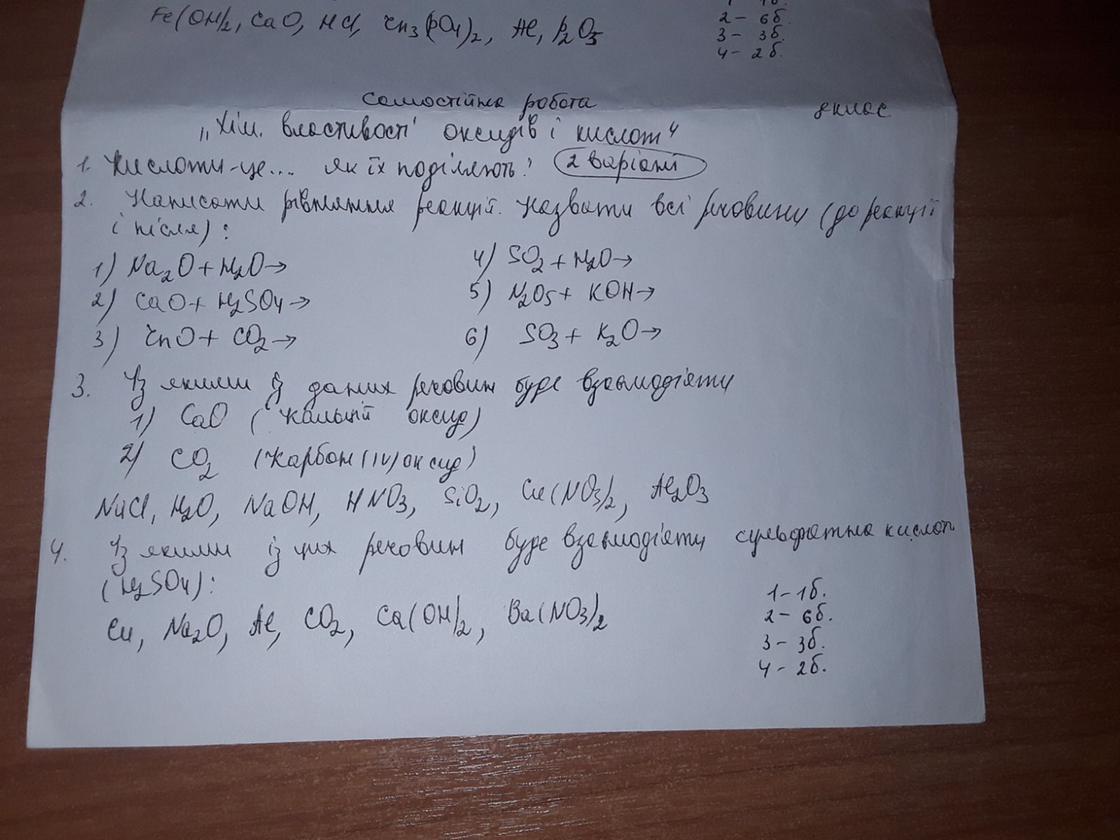 Fe(OH)2, CaO, HCl, Zn3(PO4)2, Al, P2O5
2 – 6б.
3 – 3б.
4 – 2б.
Самостійна робота 8 клас
„Хім. властивості оксидів і кислот"
1. Кислоти - це... як їх поділяють? 2 варіант
2. Написати рівняння реакції. Назвати всі речовини (до реакції
і після):
1) Na2O + H2O →
2) CaO + H2SO4 →
3) ZnO + CO2 →
4) SO2 + H2O →
5) N2O5 + KOH →
6) SO3 + K2O →
3. Із якими із даних речовин буде взаємодіяти
1) CaO (кальцій оксид)
2) CO2 (карбон (IV) оксид)
NaCl, H2O, NaOH, HNO3, SiO2, Cu(NO3)2, Al2O3
4. Із якими із цих речовин буде взаємодіяти сульфатна кислот
(H2SO4):
Cu, Na2O, Al, CO2, Ca(OH)2, Ba(NO3)2
1 – 1б.
2 – 6б.
3 – 3б.
4 – 2б.